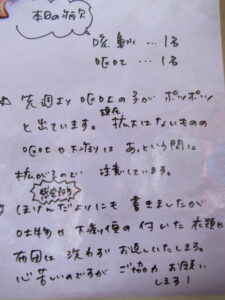 本日の病欠
咳・鼻水 … 1名
嘔吐 … 1名
先週より嘔吐の子がポツポツ
と出ています。現在、拡大はないものの
嘔吐や下痢は、あっという間に
拡がるので注意しています。
感染予防
ほけんだよりにも書きましたが
吐物や下痢便の付いた衣類や
布団は洗わずお返しいたします。
心苦しいのですがご協力お願い
します!